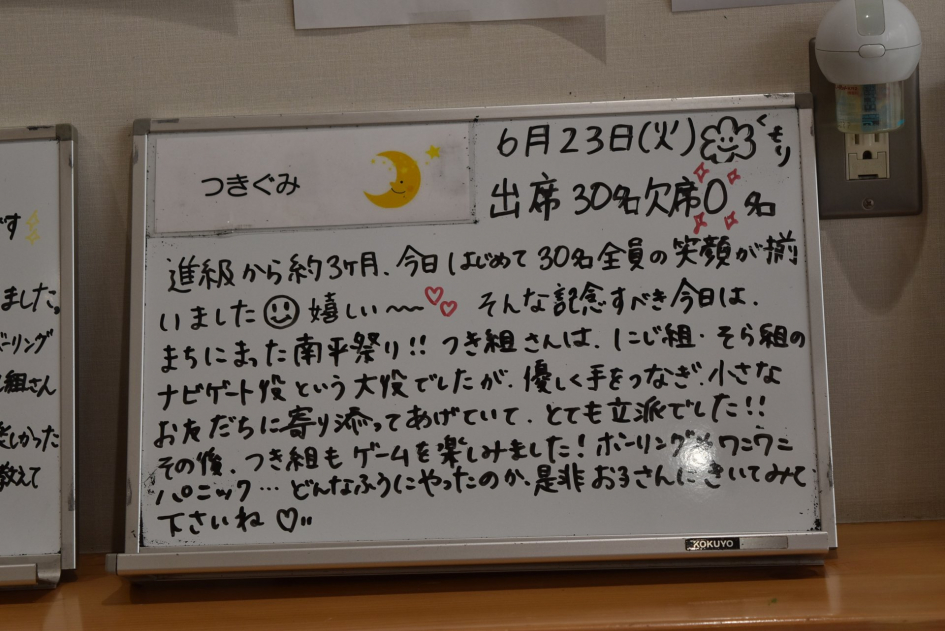 つきぐみ
6月23日(火) くもり
出席30名欠席0名
進級から約3ヶ月、今日はじめて30名全員の笑顔が揃
いました 嬉しい〜♡♡ そんな記念すべき今日は、
まちにまった南平祭り!! つき組さんは、にじ組・そら組の
ナビゲート役という大役でしたが、優しく手をつなぎ、小さな
お友だちに寄り添ってあげていて、とても立派でした!!
その後、つき組もゲームを楽しみました! ボーリングやワニワニ
パニック… どんなふうにやったのか、是非お子さんにきいてみて
下さいね♡
KOKUYO
です
ました。
ボーリング
組さん
楽しかった
教えて